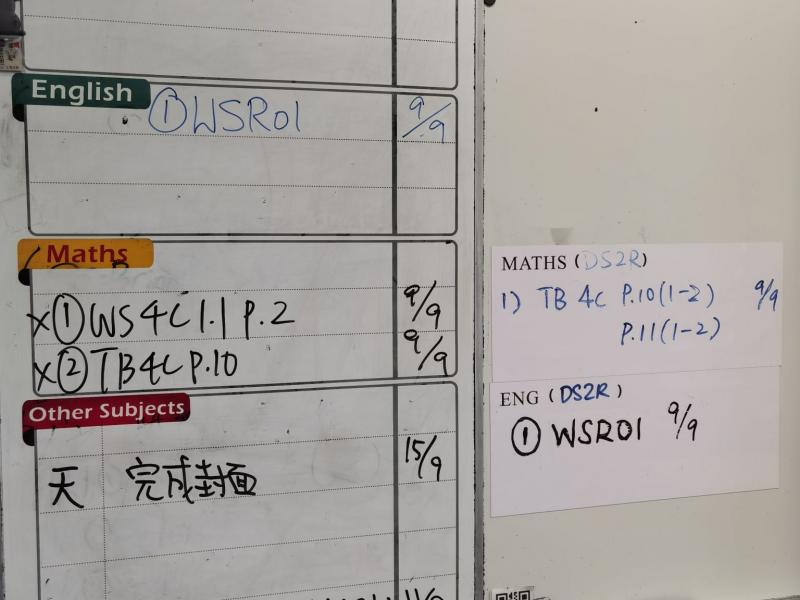 English
① WSR01 9/9
Maths
×① WS 4C 1.1 P.2 9/9
×② TB 4C P.10 9/9
Other Subjects
天 完成封面 15/9
MATHS (DS2R)
1) TB 4C P.10(1-2) 9/9
P.11(1-2)
ENG (DS2R)
① WSR01 9/9